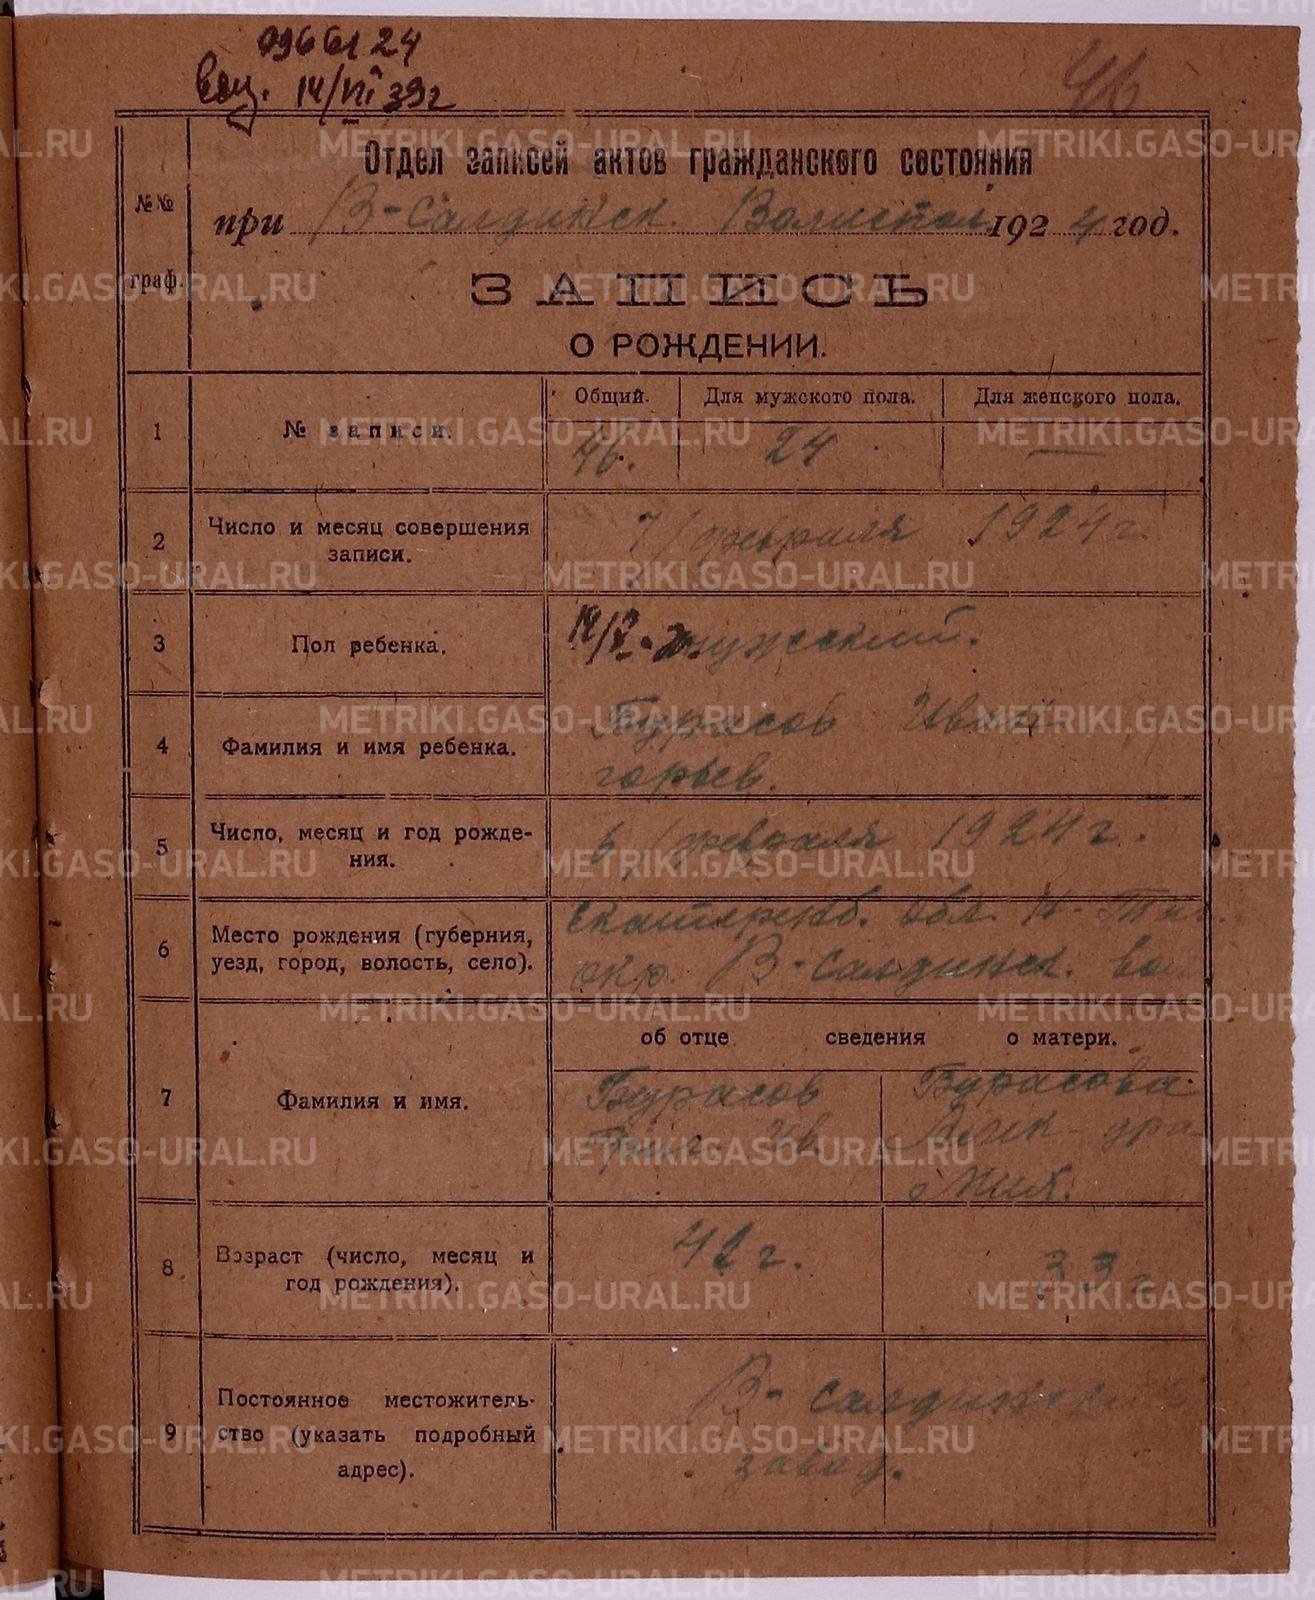 096612 4
выд. 14/VI 39 г
46
Отдел записей актов гражданского состояния
№№ граф.
при В-Салдинск. Волисполк. 1924 год.
ЗАПИСЬ
О РОЖДЕНИИ.
Общий. Для мужского пола. Для женского пола.
1 № записи. 46. 24 —
2 Число и месяц совершения
записи.
7/февраля 1924 г.
3 Пол ребенка. мужской.
4 Фамилия и имя ребенка. Бурасов
5 Число, месяц и год рожде-
ния.
6/февраля 1924 г.
6 Место рождения (губерния,
уезд, город, волость, село).
Екатеренб. обл. Н-Таг.
окр. В-Салдинск. вол
об отце сведения о матери.
7 Фамилия и имя.
Бурасов
Григ. Ив.
Бурасова
Алек-дра
Мих.
8 Возраст (число, месяц и
год рождения).
42 г. 33 г
9 Постоянное местожитель-
ство (указать подробный
адрес).
В-Салдинский
завод.
METRIKI.GASO-URAL.RU